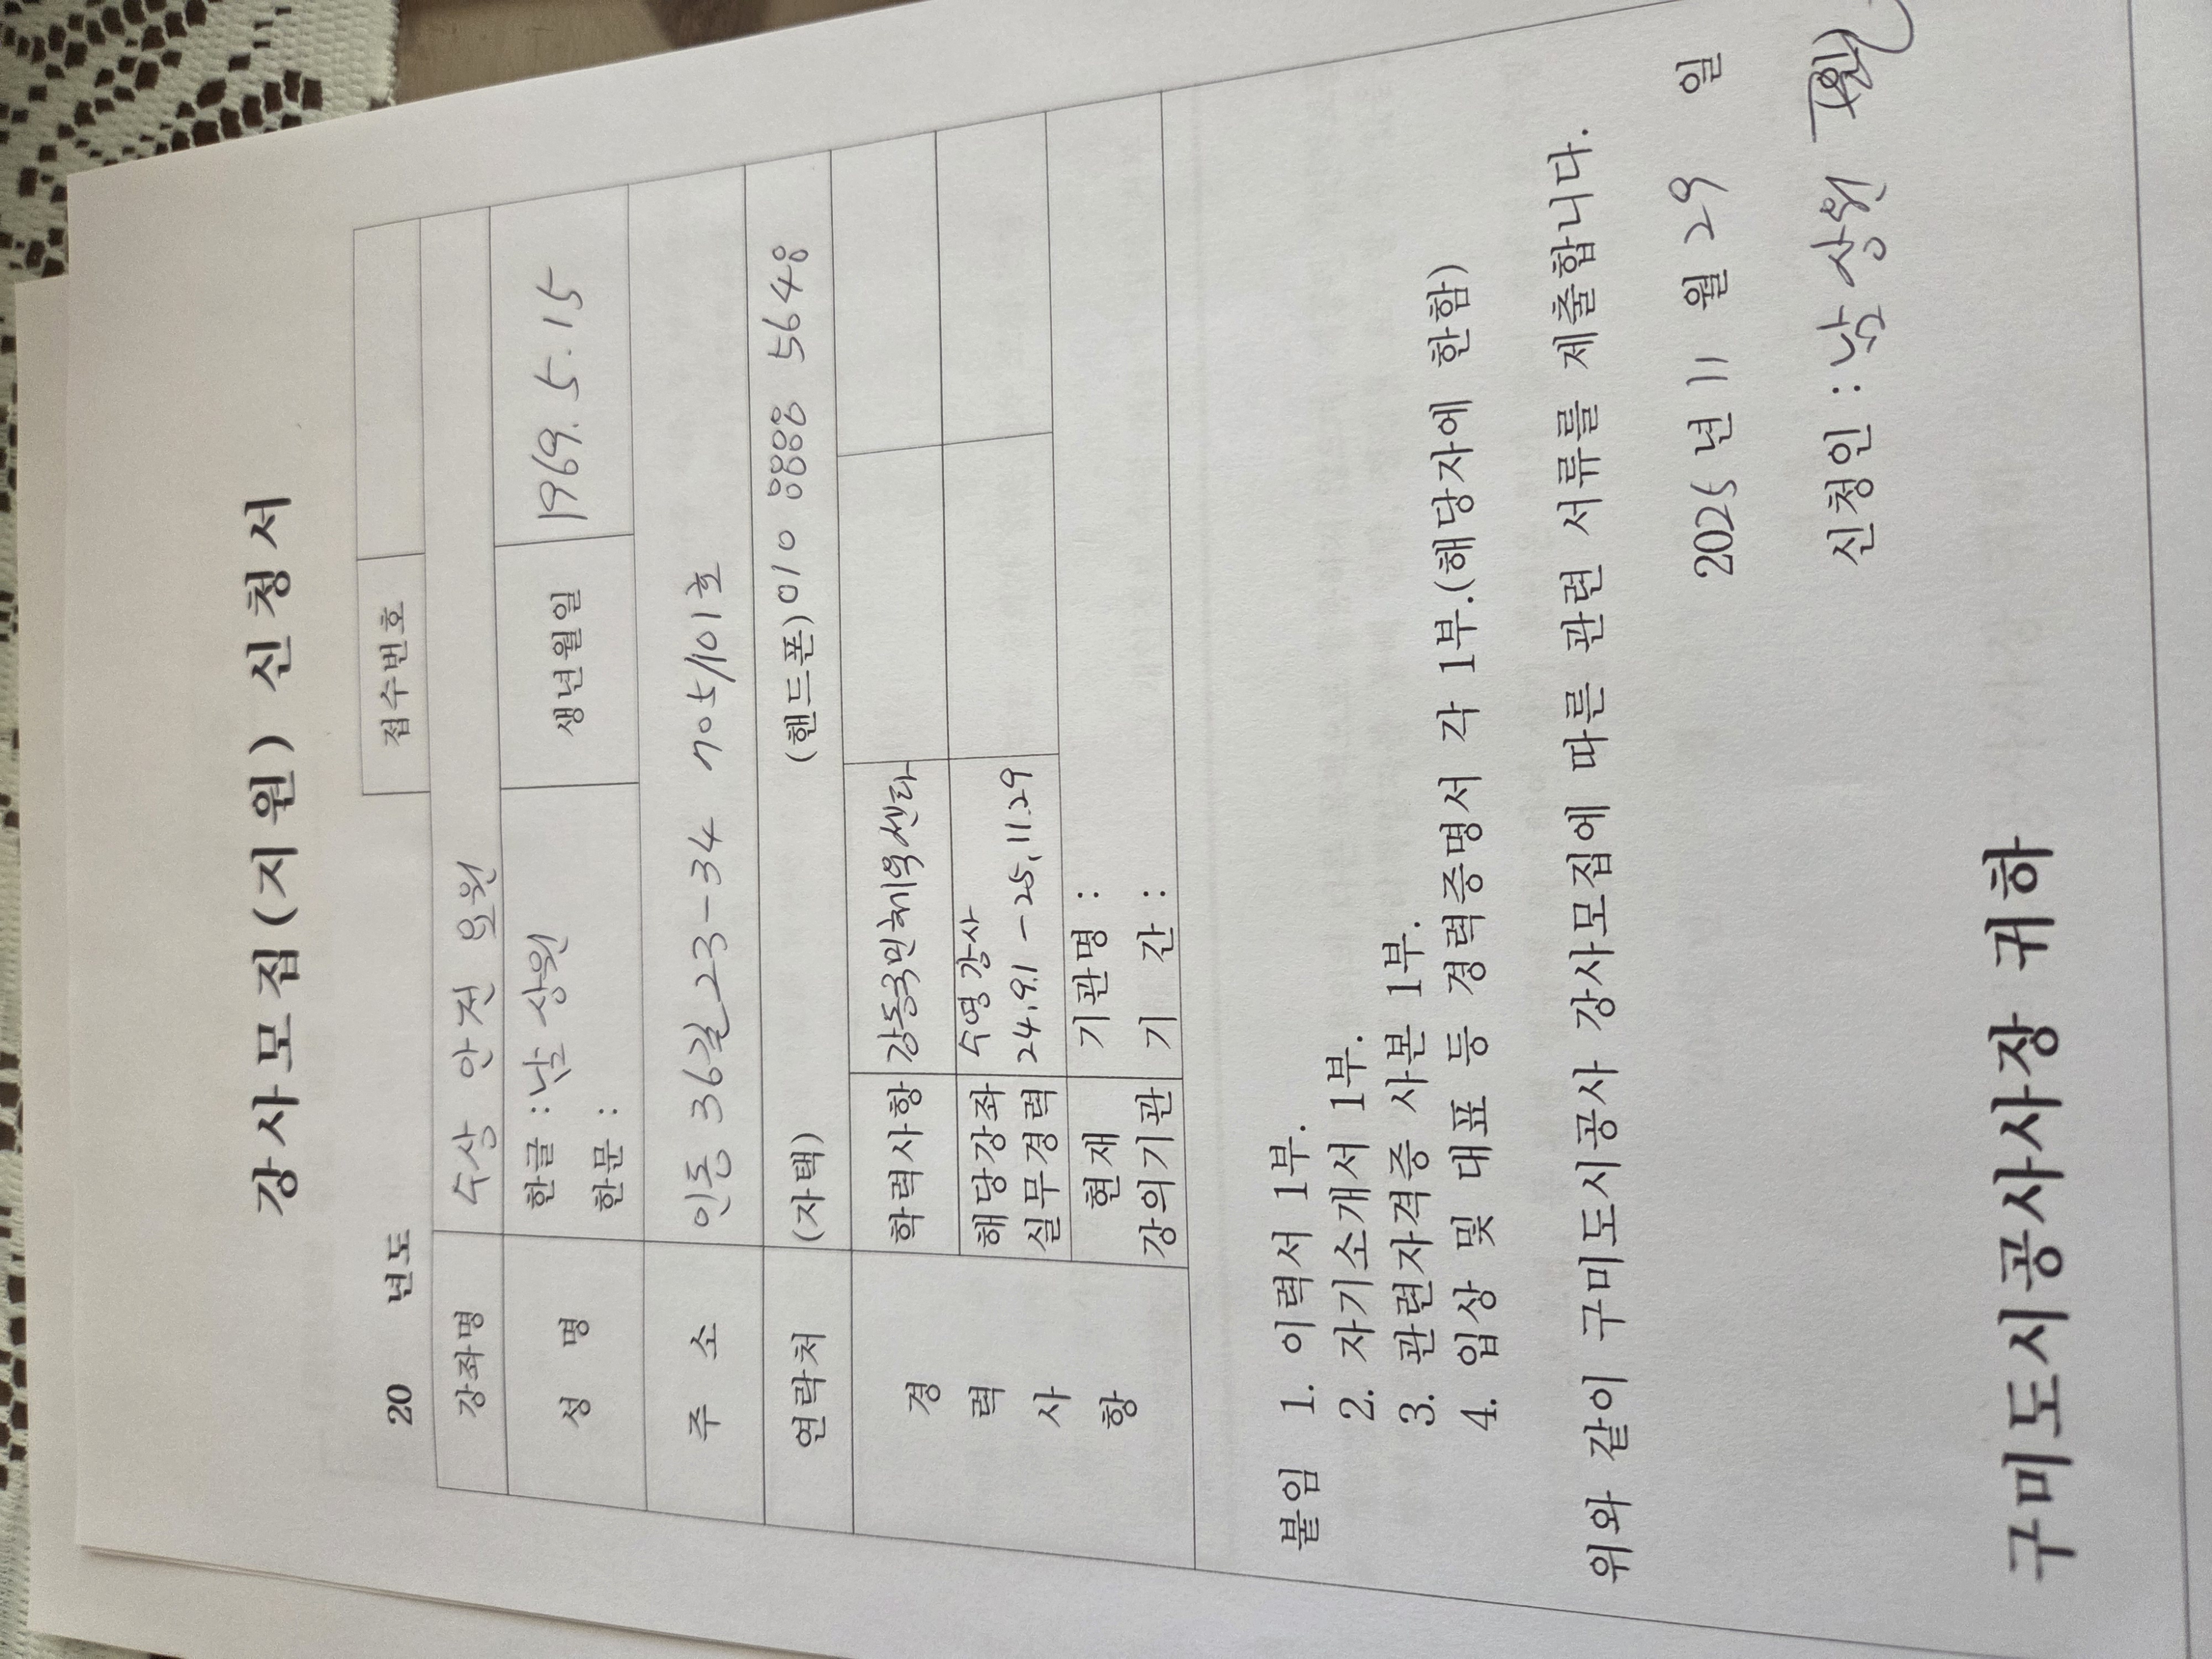 강사모집(지원) 신청서
20 년도 접수번호
강좌명 수상 안전 요원
성 명 한글 : 남상원 생년월일 1969. 5. 15
한문 :
주 소 인동 36길 23-34 705/101호
연락처 (자택) (핸드폰) 010 8888 5648
경력사항
학력사항 강동국민체육센타
해당강좌 수영강사
실무경력 24.9.1 - 25.11.29
현재 기관명 :
강의기관 기 간 :
붙임 1. 이력서 1부.
2. 자기소개서 1부.
3. 관련자격증 사본 1부.
4. 입상 및 대표 등 경력증명서 각 1부.(해당자에 한함)
위와 같이 구미도시공사 강사모집에 따른 관련 서류를 제출합니다.
2025 년 11 월 29 일
신청인 : 남상원
구미도시공사사장 귀하